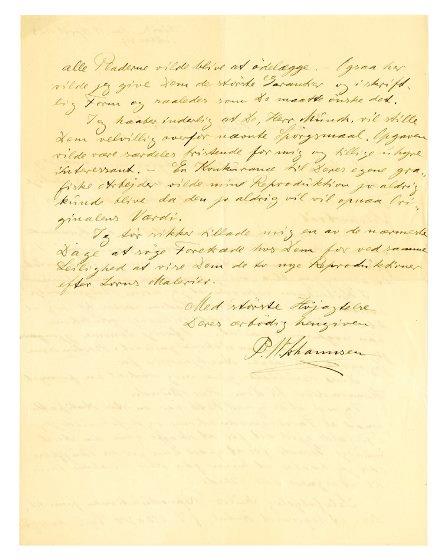 alle Pladerne vilde blive at ödelægge. – Ogsaa her
vilde jeg give Dem de störste Garantier og i skrift-
lig Form og saaledes som De maatte önske det.
Jeg haaber inderlig at De, Herr Münch, vil stille
Dem velvillig overfor nævnte Spörgsmaal. Opgaven
vilde være særdeles fristende for mig og tillige uhyre
Interessant. – En Konkurance til Deres egne gra-
fiske Arbejder vilde mine Reproduktion jo aldrig
kunde blive da den jo aldrig vil opnaa Ori-
ginalens Værdi.
Jeg tör sikker tillade mig en av de nærmeste
Dage at söge Foretræde hos Dem for ved samme
Leilighed at vise Dem de to nye Reproduktioner
efter Malerier.
Med störste Höjagtelse
Deres ærbödig hengiven
Johannsen